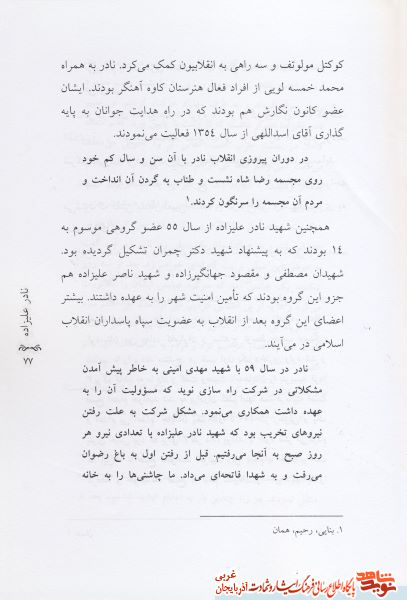 کوکتل مولوتف و سه راهی به انقلابیون کمک می‌کرد. نادر به همراه
محمد خمسه لویی از افراد فعال هنرستان کاوه آهنگر بودند. ایشان
عضو کانون نگارش هم بودند که در راه هدایت جوانان به پایه
گذاری آقای اسداللهی از سال ۱۳۵۴ فعالیت می‌نمودند.
در دوران پیروزی انقلاب نادر با آن سن و سال کم خود
روی مجسمه رضا شاه نشست و طناب به گردن آن انداخت و
مردم آن مجسمه را سرنگون کردند.۱
همچنین شهید نادر علیزاده از سال ۵۵ عضو گروهی موسوم به
۱۴ بودند که به پیشنهاد شهید دکتر چمران تشکیل گردیده بود.
شهیدان مصطفی و مقصود جهانگیرزاده و شهید ناصر علیزاده هم
جزو این گروه بودند که تأمین امنیت شهر را به عهده داشتند. بیشتر
اعضای این گروه بعد از انقلاب به عضویت سپاه پاسداران انقلاب
اسلامی در می‌آیند.
نادر در سال ۵۹ با شهید مهدی امینی به خاطر پیش آمدن
مشکلاتی در شرکت راه سازی نوید که مسؤولیت آن را به
عهده داشت همکاری می‌نمود. مشکل شرکت به علت رفتن
نیروهای تخریب بود که شهید نادر علیزاده با تعدادی نیرو هر
روز صبح به آنجا می‌رفتیم. قبل از رفتن اول به باغ رضوان
می‌رفت و به شهدا فاتحه‌ای می‌داد. ما چاشنی‌ها را به خانه
۱. بنایی، رحیم، همان
نادر علیزاده
۷۷
نوید شاهد
پایگاه اطلاع رسانی فرهنگ ایثار و شهادت آذربایجان غربی